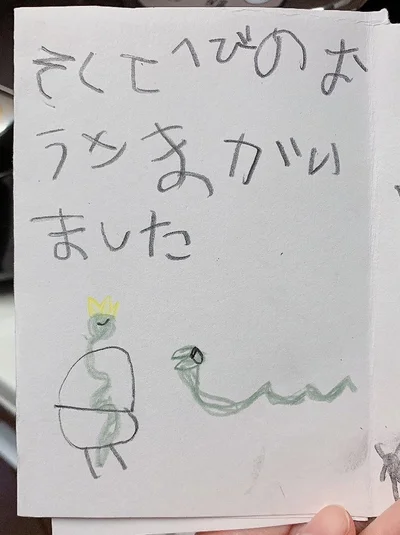 そくてへびのお
うさまがい
ました